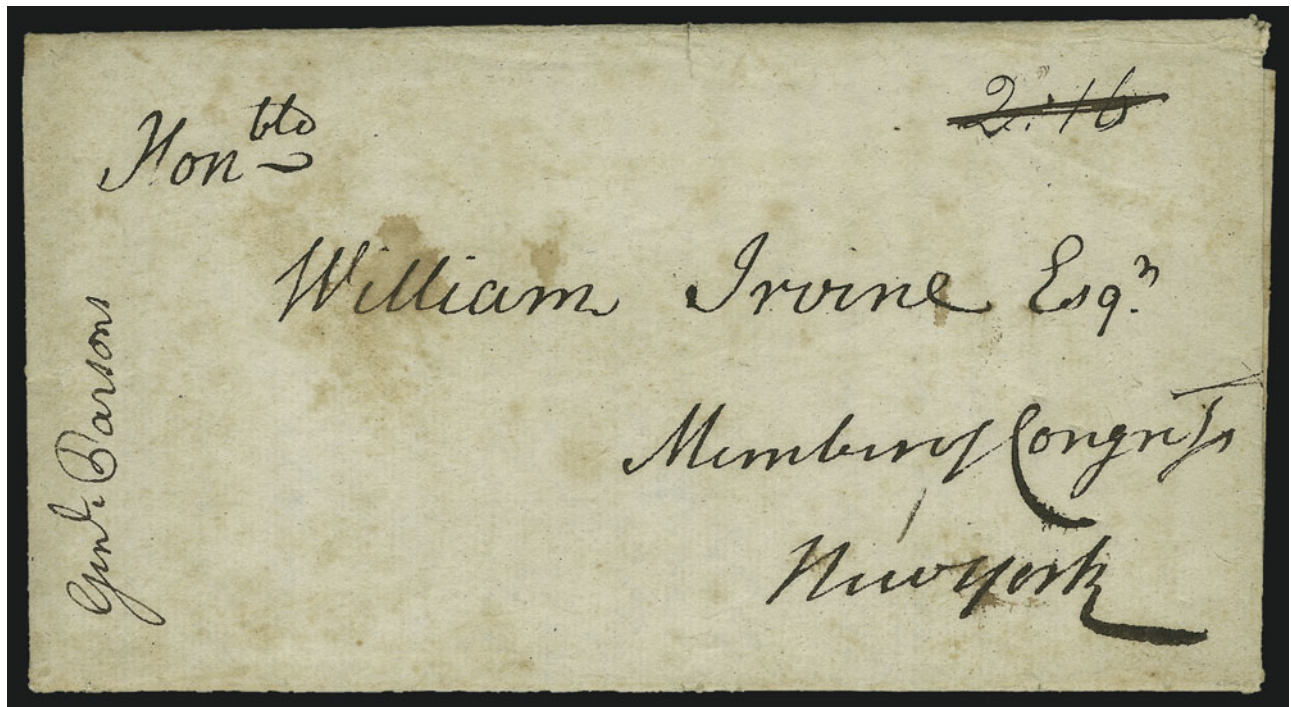 Honble
2:16
William Irvine Esqr.
Member of Congress
New York
Genl. Parsons